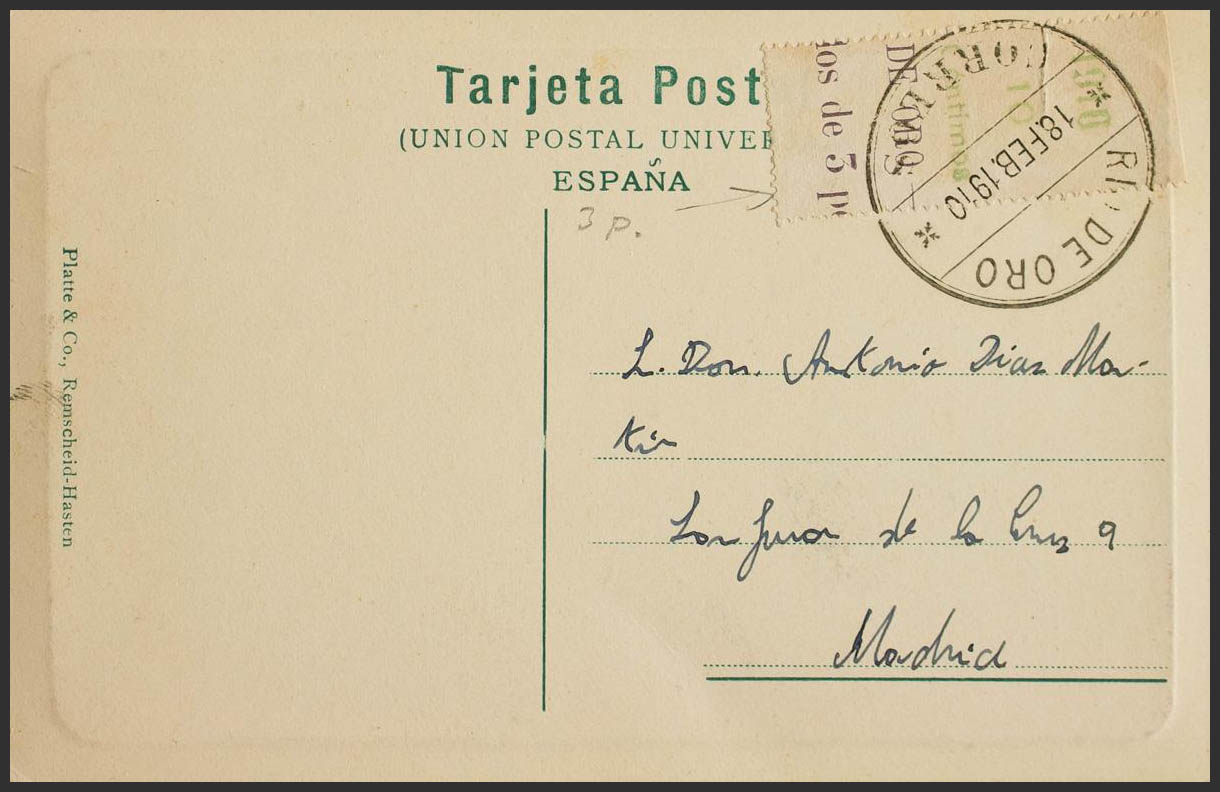 Tarjeta Post
(UNION POSTAL UNIVER
ESPAÑA
3 p.
dos de 5 pe
DE
10
Céntimos
1910
CORREOS
18.FEB.1910
RIO DE ORO
Platte & Co., Remscheid-Hasten
S. Don. Antonio Diaz Mar-
tin
San Juan de la Cruz 9
Madrid